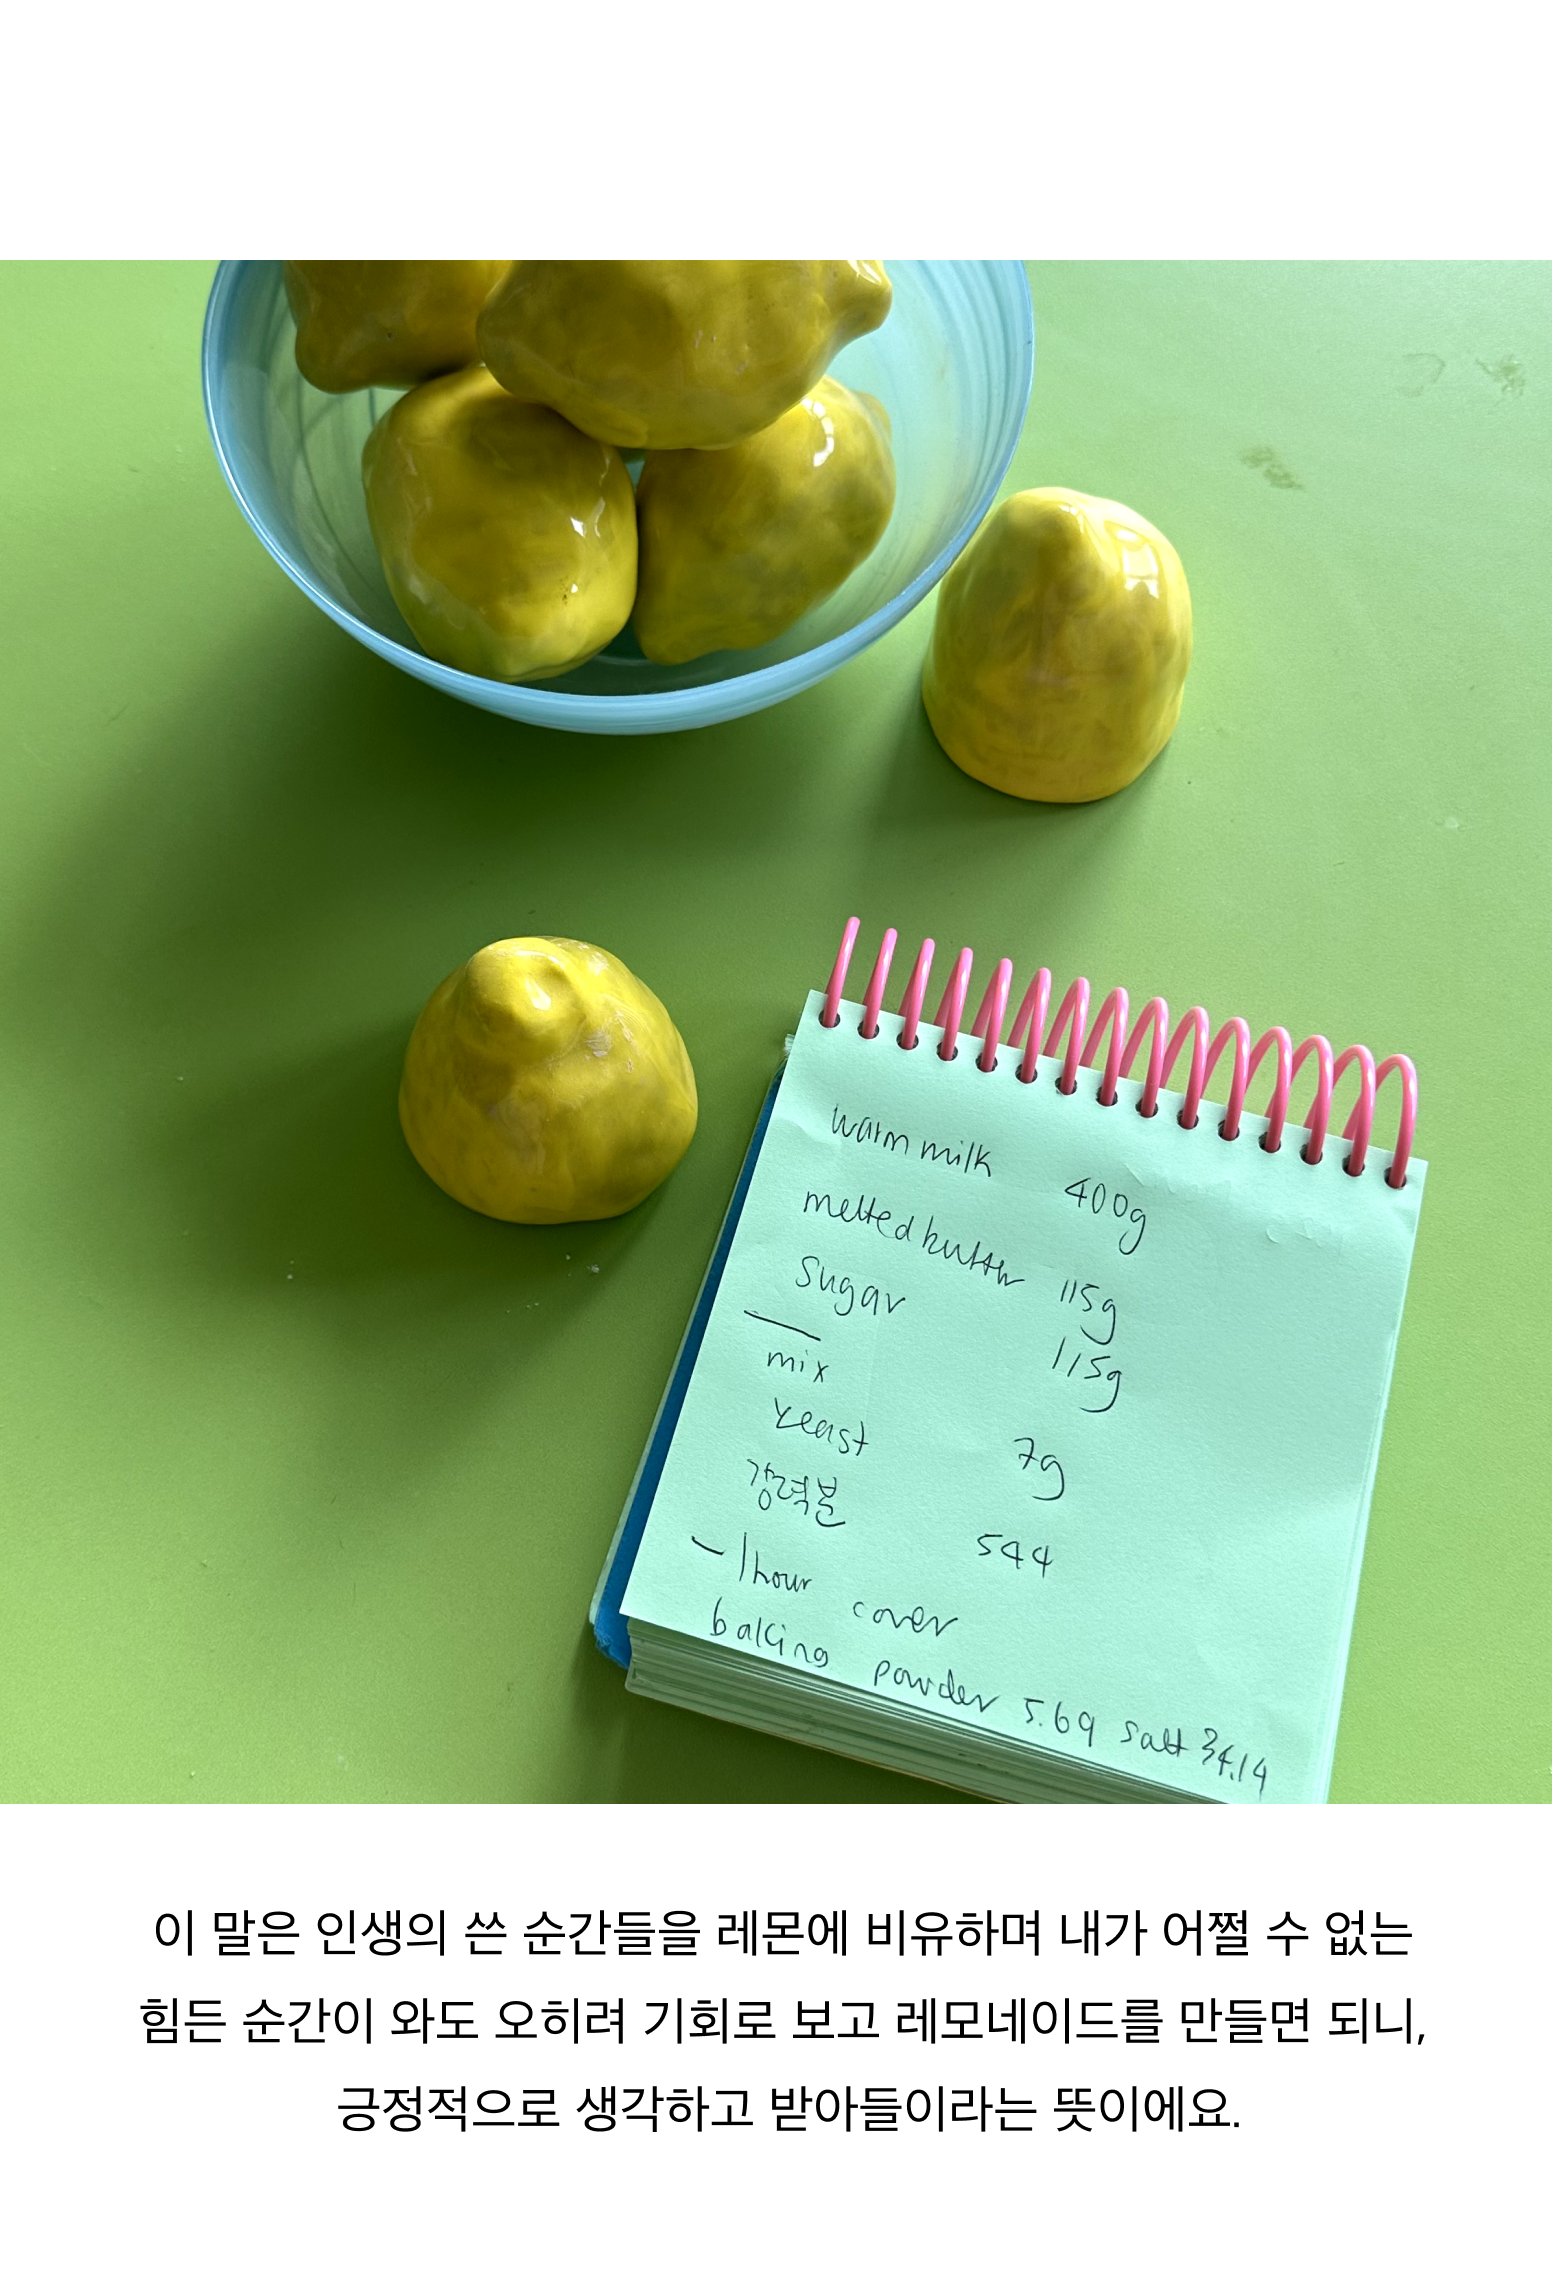 warm milk 400g
melted butter 115g
sugar 115g
mix
yeast 7g
강력분 544
- 1 hour cover
baking powder 5.6g salt
이 말은 인생의 쓴 순간들을 레몬에 비유하며 내가 어쩔 수 없는
힘든 순간이 와도 오히려 기회로 보고 레모네이드를 만들면 되니,
긍정적으로 생각하고 받아들이라는 뜻이에요.